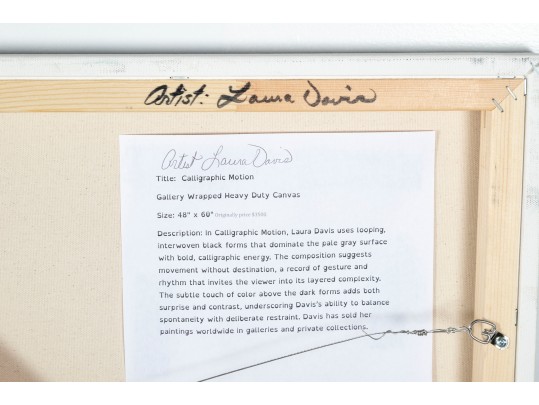 Artist: Laura Davis
Artist Laura Davis
Title: Calligraphic Motion
Gallery Wrapped Heavy Duty Canvas
Size: 48" x 60" Originally price
Description: In Calligraphic Motion, Laura Davis uses looping,
interwoven black forms that dominate the pale gray surface
with bold, calligraphic energy. The composition suggests
movement without destination, a record of gesture and
rhythm that invites the viewer into its layered complexity.
The subtle touch of color above the dark forms adds both
surprise and contrast, underscoring Davis's ability to balance
spontaneity with deliberate restraint. Davis has sold her
paintings worldwide in galleries and private collections.